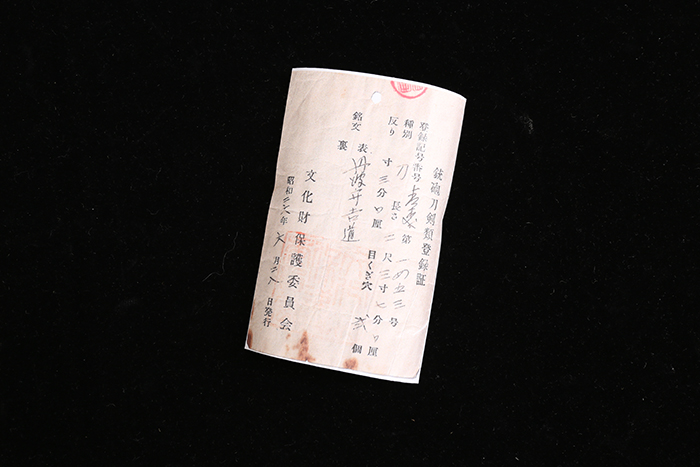 銃砲刀剣類登録証
登録記号番号 第一四五三号
種別 刀 長さ 二尺三寸七分 厘
反り 寸三分 厘 目くぎ穴 弐個
銘文 表 丹波守吉道
裏
文化財保護委員会
昭和二六年 月 日発行